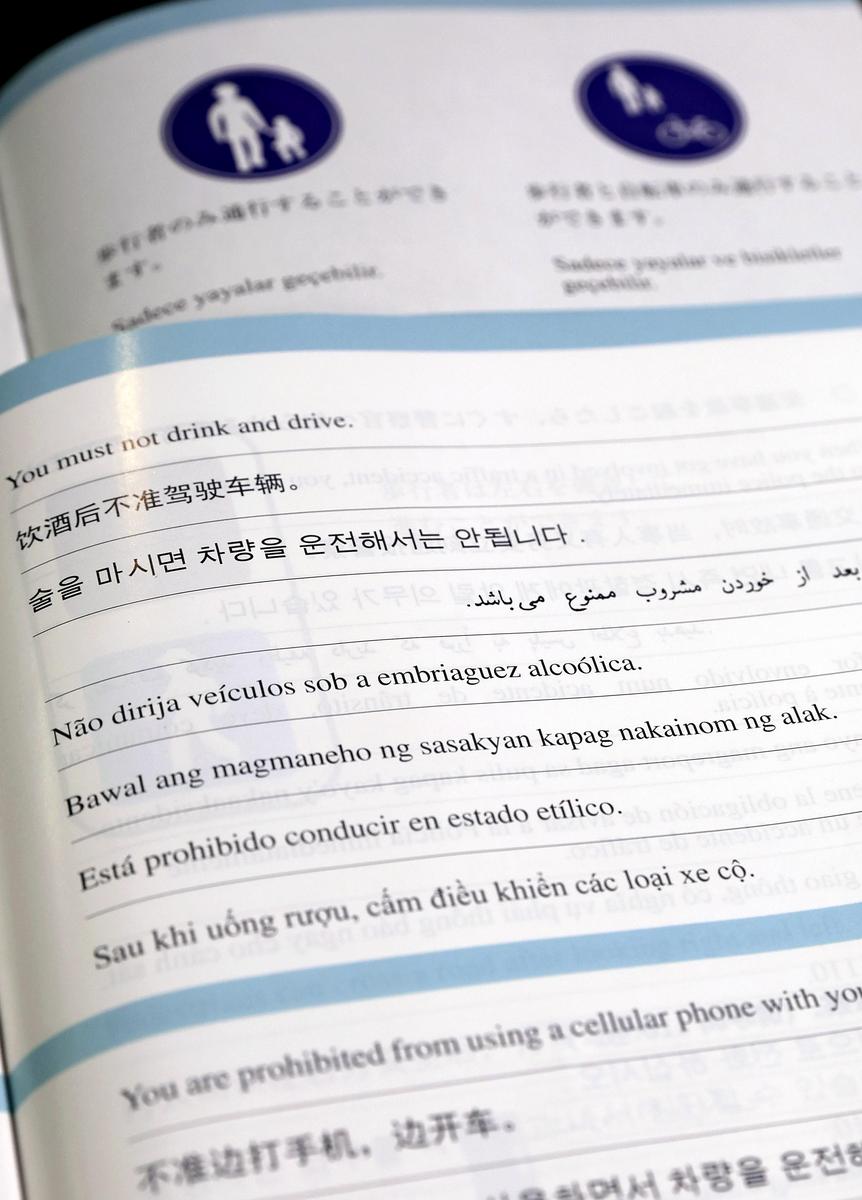 歩行者のみ通行することができ
ます。
Sadece yayalar geçebilir.
歩行者と自転車のみ通行すること
ができます。
Sadece yayalar ve bisikletler
geçebilir.
You must not drink and drive.
饮酒后不准驾驶车辆。
술을 마시면 차량을 운전해서는 안됩니다 .
بعد از خوردن مشروب ممنوع می باشد.
Não dirija veículos sob a embriaguez alcoólica.
Bawal ang magmaneho ng sasakyan kapag nakainom ng alak.
Está prohibido conducir en estado etílico.
Sau khi uống rượu, cấm điều khiển các loại xe cộ.
You are prohibited from using a cellular phone with
不准边打手机，边开车。
차량을